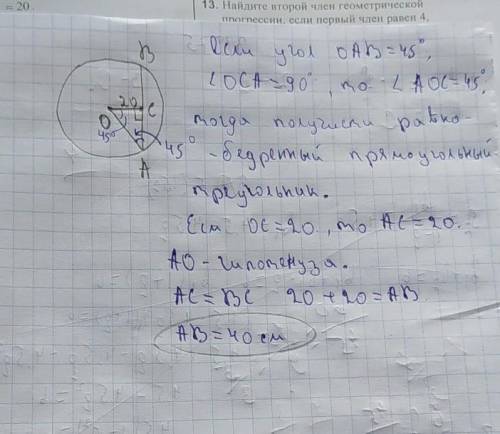 = 20
13. Найдите второй член геометрической
прогрессии, если первый член равен 4,
B
20
C
O
45°
45°
A
Если угол OAB=45°,
∠OCA=90°, то ∠AOC=45,
тогда получили равно-
-бедренный прямоугольный
треугольник.
Если OC=20, то AC=20.
AO-гипотенуза.
AC=BC 20+20=AB
AB=40 см